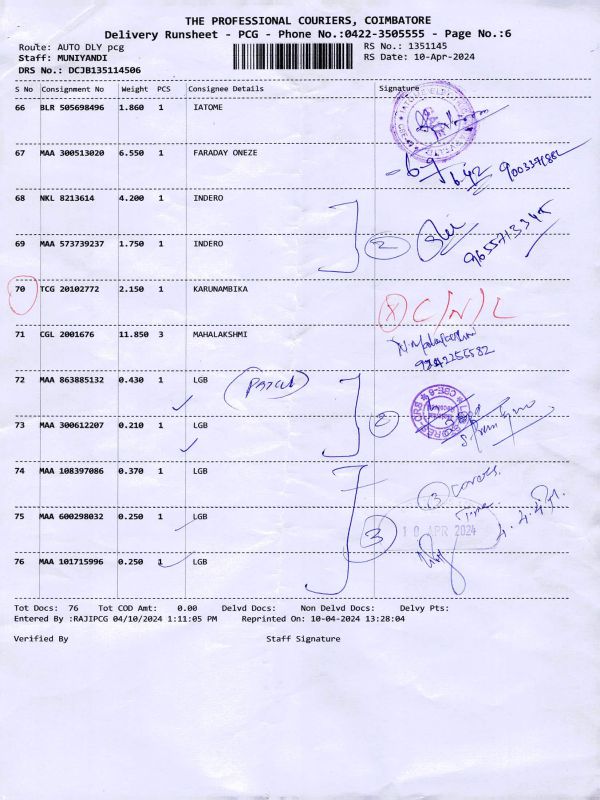 THE PROFESSIONAL COURIERS, COIMBATORE
Delivery Runsheet - PCG - Phone No.:0422-3505555 - Page No.:6
Route: AUTO DLY pcg RS No.: 1351145
Staff: MUNIYANDI RS Date: 10-Apr-2024
DRS No.: DCJB135114506
S No Consignment No Weight PCS Consignee Details Signature
66 BLR 505698496 1.860 1 IATOME
67 MAA 300513020 6.550 1 FARADAY ONEZE
68 NKL 8213614 4.200 1 INDERO
69 MAA 573739237 1.750 1 INDERO 2
70 TCG 20102772 2.150 1 KARUNAMBIKA X C/N/L
71 CGL 2001676 11.850 3 MAHALAKSHMI
72 MAA 863885132 0.430 1 LGB
73 MAA 300612207 0.210 1 LGB 2
74 MAA 108397086 0.370 1 LGB
75 MAA 600298032 0.250 1 LGB 3 10 APR 2024
76 MAA 101715996 0.250 1 LGB
Tot Docs: 76 Tot COD Amt: 0.00 Delvd Docs: Non Delvd Docs: Delvy Pts:
Entered By :RAJIPCG 04/10/2024 1:11:05 PM Reprinted On: 10-04-2024 13:28:04
Verified By Staff Signature